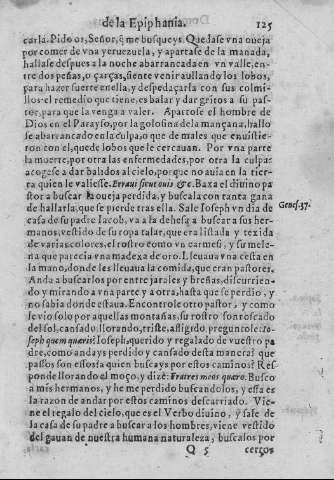 de la Epiphanía. 125
carla. Pido os, Señor, q̃ me busqueys. Quedase vna oueja
por comer de vna yeruezuela, y apartase de la manada,
hallase despues a la noche abarrancada en vn valle, en-
tre dos peñas, o çarças, siente venir aullando los lobos,
para hazer suerte en ella, y despedaçarla con sus colmi-
llos: el remedio que tiene, es balar y dar gritos a su pas-
tor, para que la venga a valer. Apartose el hombre de
Dios en el Parayso, por la golosina de la mançana, hallo
se abarrancado en la culpa, o que de males que enuistie-
ron con el, quede lobos que le cercauan. Por vna parte
la muerte, por otra las enfermedades, por otra la culpa:
acogese a dar balidos al cielo, porque no auia en la tier-
ra quien le valiesse. Erraui sicut ouis &c. Baxa el diuino pa
stor a buscar la oueja perdida, y buscala con tanta gana
de hallarla, que se pierde tras ella. Sale Ioseph vn dia de
casa de su padre Iacob, va a la dehesa a buscar a sus her-
manos, vestido de su ropa talar, que era listada y texida
de varias colores, el rostro como vn carmesi, y su mele-
na que parecia vna madexa de oro. Lleuaua vna cesta en
la mano, donde les lleuaua la comida, que eran pastores.
Anda a buscarlos por entre jarales y breñas, discurrien-
do y mirando a vna parte y a otra, hasta que se perdio, y
no sabia donde estaua. Encontrole otro pastor, y como
le vio solo por aquellas montañas, su rostro sonroscado
del sol, cansado, llorando, triste, afligido, preguntole: Io-
seph quem quæris? Ioseph, querido y regalado de vuestro pa
dre, como andays perdido y cansado desta manera? que
passos son essos? a quien buscays por estos caminos? Res
ponde llorando el moço, y dize: Fratres meos quæro. Busco
a mis hermanos, y he me perdido buscandolos, y essa es
la razon de andar por estos caminos descarriado. Vie-
ne el regalo del cielo, que es el Verbo diuino, y sale de
la casa de su padre a buscar a los hombres, viene vestido
del gauan de nuestra humana naturaleza, buscalos por
Q 5 cerros
Genes. 37.